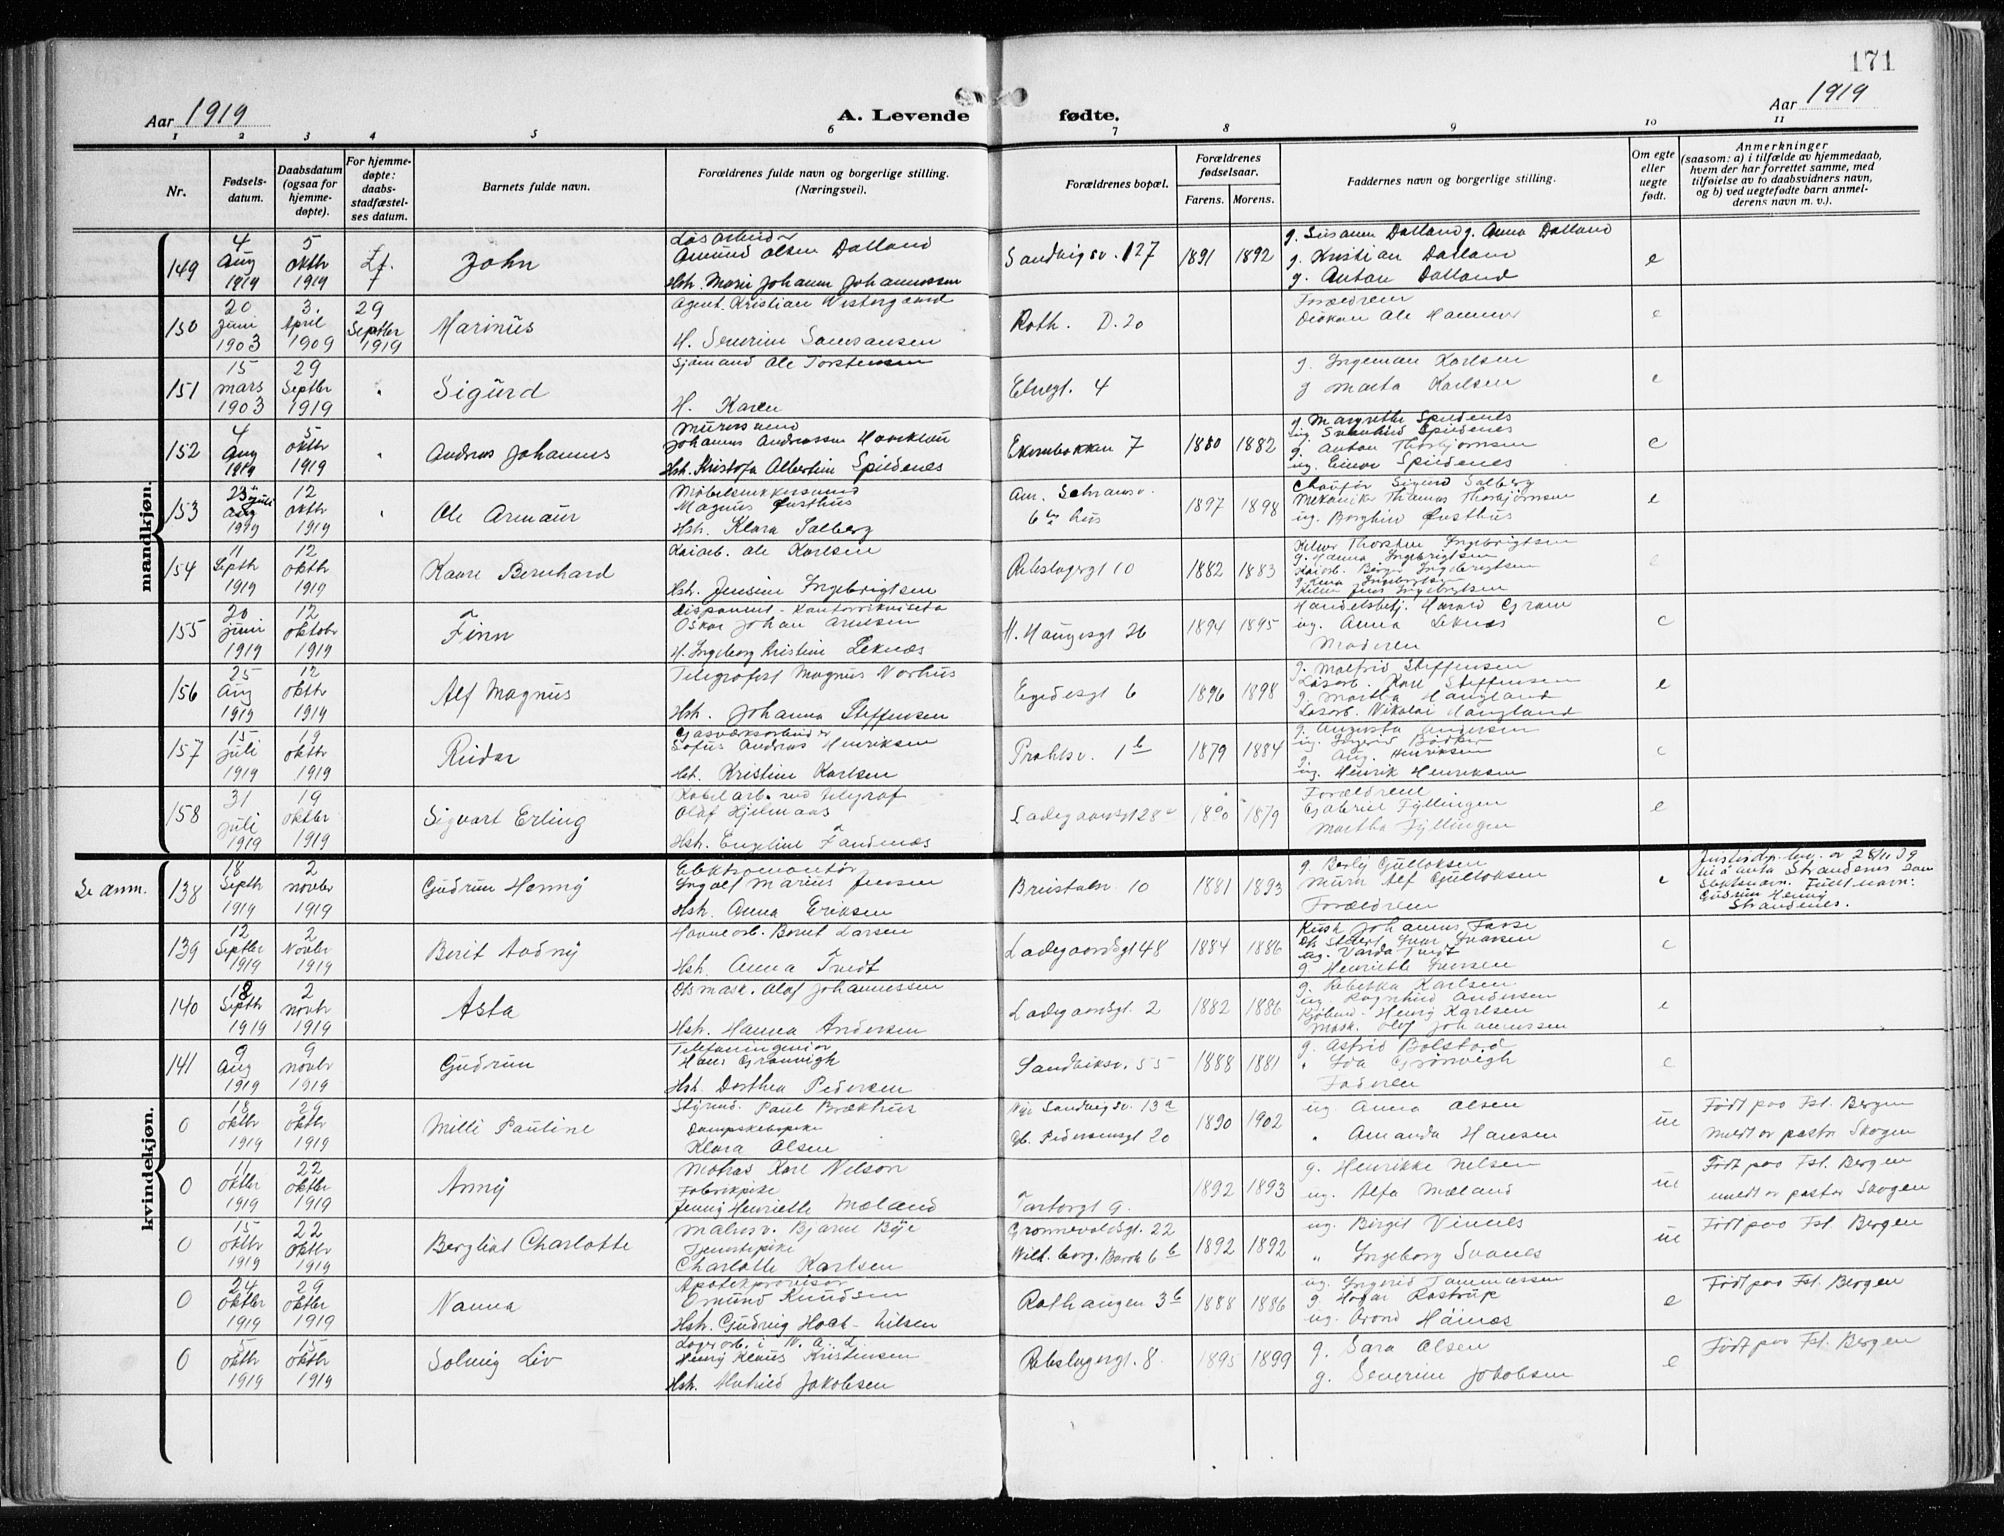 171
Aar 1919
A. Levende fødte.
Aar 1919
1 2 3 4 5 6 7 8 9 10 11
Nr.
Fødsels-
datum.
Daabsdatum
(ogsaa for
hjemme-
døpte).
For hjemme-
døpte:
daabs-
stadfæstel-
ses datum.
Barnets fulde navn.
Forældrenes fulde navn og borgerlige stilling.
(Næringsvei).
Forældrenes bopæl.
Forældrenes
fødselsaar.
Farens. Morens.
Faddernes navn og borgerlige stilling.
Om egte
eller
uegte
født.
Anmerkninger
(saasom: a) i tilfælde av hjemmedaab,
hvem der har forrettet samme, med
tilføielse av to daabsvidners navn,
og b) ved uegtefødte barn anmel-
derens navn m. v.).
mandkjøn.
149
4
Aug
1919
5
oktbr
1919
John
Løsarbeider
Amund Olsen Dalland
Hst. Marie Johanne Johannessen
Sandvigsv. 127
1891 1892
g. Susanne Dalland g. Anna Dalland
g. Kristian Dalland
g. Anton Dalland
e
150
20
juni
1903
3.
April
1909
29
Septbr
1919
Marinus
Agent Kristian Vestergaard
H. Severine Samsonsen
Roth. D. 20
Forældrene
Diakon Ole Hammer
e
151
15
mars
1903
29
Septbr
1919
Sigurd
Sjømand Ole Torstensen
H. Karen
Elvegt. 4
g. Ingeman Karlsen
g Marta Karlsen
e
152
4
Aug
1919
5
oktbr
1919
Andreas Johannes
Murersvend
Hst. Kristofa Albertine Spildenes
7
1880 1882
g. Margrethe Spildenes
g. Anton Thorbjørnsen
ug. Einar Spildenes
e
153
23
juli
1919
12
oktbr
1919
Ole Arnaur
Møbelsnekkersvend
Magnus Østhus
Hst. Klara Salberg
6te hus
1897 1898
Chauffør Sigurd Salberg
Mekaniker Thomas Thorbjørnsen
ug. Borghild Østhus
e
154
11
Septbr
1919
12
oktbr
1919
Kaare Bernhard
Kaiarb. Ole Karlsen
Hst. Jensine Ingebrigtsen
Rebslagergt 10
1882 1883
Thorsten Ingebrigtsen
g. Hanna Ingebrigtsen
Kaiarb. Birger Ingebrigtsen
e
155
20
juni
1919
12
oktobr
1919
Finn
Disponent -
Oskar Johan Arnesen
H. Ingeborg Kristine Leknæs
H. Haugesgt 26
1894 1895
Handelsbetj. Harald Gram
ug. Anna Leknæs
Moderen
e
156
25
Aug
1919
12
oktbr
1919
Alf Magnus
Telegrafist Magnus Norhus
Hst. Johanna Steffensen
Egedesgt 6
1896 1898
g. Malfrid Steffensen
Løsarb. Karl Steffensen
g. Martha Haugland
Løsarb. Nikolai Haugland
e
157
15
juli
1919
19
oktbr
1919
Reidar
Gasværksarbeider
Sofus Andreas Henriksen
Hst. Kristine Karlsen
Prahlsv. 1b
1879 1884
g. Augusta Andersen
g. Aug. Henriksen
ug. Henrik Henriksen
e
158
31
juli
1919
19
oktbr
1919
Sigvart Erling
Kabelarb. ved telegraf
Olaf Hjelmaas
Hst. Engeline Sandenæs
Ladegaardsgt 28a
1880 1879
Forældrene
Gabriel Fyllingen
Martha Fyllingen
e
kvindekjøn.
Se anm.
138
18
Septbr
1919
2
novbr
1919
Gudrun Henny
Elektromontør
Ingolf Marius Jensen
Hst. Anna Eriksen
10
1881 1893
g. Berly Gulloksen
Murer Alf Gulloksen
Forældrene
e
Justisdp. bev. av 28/11 39
til å anta Strandenes som
slektsnavn. Fullt navn:
Gudrun Henny
Strandenes.
139
12
Septbr
1919
2
Novbr
1919
Berit Audny
Havnearb. Bernt Larsen
Hst. Anna Tvedt
Ladegaardsgt 48
1884 1886
Kusk Johannes Farse
ug. Varda Tvedt
g. Henriette Iversen
e
140
18
Septbr
1919
2
novbr
1919
Asta
Dsmask. Olaf Johannessen
Hst. Hanna Andersen
Ladegaardsgt. 2
1882 1886
g. Rebekka Karlsen
ug. Ragnhild Andersen
Kjøbmd. Henry Karlsen
Mask. Olaf Johannessen
e
141
9
Aug
1919
9
novbr
1919
Gudrun
Telefoningeniør
Hans Grønvigh
Hst. Dorthea Pedersen
Sandviksv. 55
1888 1881
g. Astrid Bolstad
" Lda Grønvigh
Faderen
e
0
18
oktbr
1919
29
oktbr
1919
Milli Pauline
Styrmd. Paul Brækhus
Dampskibspike
Klara Olsen
Nye Sandvigsv. 13a
Gb. Pedersensgt 20
1890 1902
ug. Anna Olsen
" Amanda Hansen
ue
Født paa Fst. Bergen
meldt av pastor Skogen
0
11
oktbr
1919
22
oktbr
1919
Anny
Matros Karl Nelson
Fabrikpike
Jenny Henriette Mæland
Tartargt 9.
1892 1893
g. Henrikke Nelsen
ug. Alfa Mæland
ue
Født paa Fst. Bergen
meldt av pastor Skogen
0
15
oktbr
1919
22
oktbr
1919
Bergliot Charlotte
Malersv. Bjarne Bye
Tjenestepike
Charlotte Karlsen
Grønnevoldsgt. 22
1892 1892
ug. Birgit Vinnes
" Ingeborg Svanes
ue
Født paa Fst. Bergen
0
24
oktbr
1919
29
oktbr
1919
Nanna
Apotekprovisor
Omund Knudsen
Hst. Gudveig Hock-Nilsen
Rothaugen 3b
1888 1886
ug. Ingerid Tommassen
g. Hagar Rostrup
ug. Arond Høinæs
e
Født paa Fst. Bergen
0
5
oktbr
1919
15
oktbr
1919
Solveig Liv
Lagerarb. i N. A. L.
Henry Klaus Kristensen
Hst. Mathild Jakobsen
Rebslagergt. 8
1895 1899
g. Sara Olsen
g. Severine Jakobsen
e
Født paa Fst. Bergen